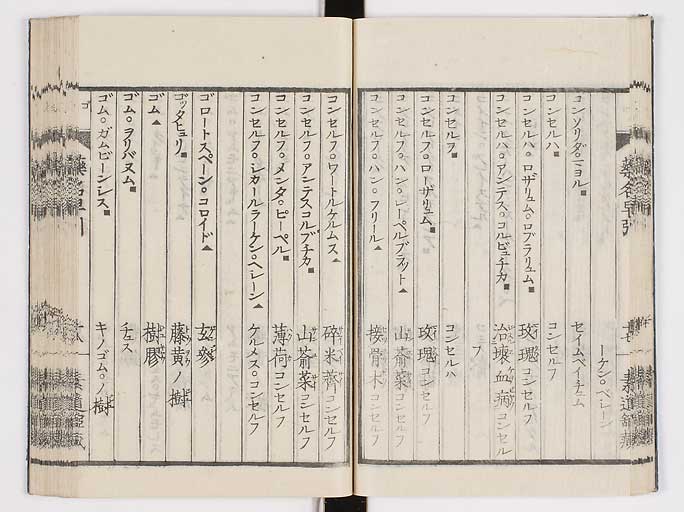 ーケン。ベレーン
コンソリダ。マヨル■ セイムベイチェム
コンセルハ■ コンセルフ
コンセルハ。ロザリュム。ロブラリュム■ 玫瑰コンセルフ
コンセルハ。アンテス。コルビュチカ■ 治壊血病コンセル
フ
コンセルフ■ コンセルハ
コンセルフ。ローザリュム■ 玫瑰コンセルフ
コンセルフ。ハン。レーペルブラット▲ 山薺菜コンセルフ
コンセルフ。ハン。フリール▲ 接骨木コンセルフ
コンセルフ。ワートルケルムス▲ 碎米薺コンセルフ
コンセルフ。アンテスコルブチカ■ 山薺菜コンセルフ
コンセルフ。メンタ。ピーペル■ 薄荷コンセルフ
コンセルフ。シカールラーケン。ベレーン▲ ケルメス。コンセルフ
ゴロートスペーン。コロイド▲ 玄參
ゴッタヒュリ■ 藤黄ノ樹
ゴム▲ 樹膠
ゴム。ヲリバヌム■ チュス
ゴム。ガムビーンシス■ キノゴム。ノ樹
藥名早引